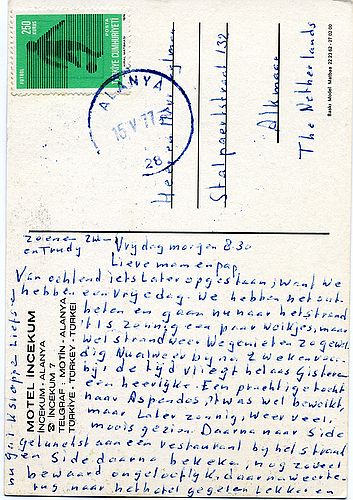 250
KURUŞ
POSTA
TÜRKİYE CUMHURİYETİ
FUTBOL
ALANYA
15 V 77
28
Stalpaertstraat 132
Alkmaar
The Netherlands
Baskı Model Matbaa 22 23 62 - 27 02 00
MOTEL İNCEKUM
İNCEKUM - ALANYA
İNCEKUM 7
TELGRAF : MOTİN - ALANYA
TÜRKİYE - TURKEY - TÜRKEI
zoenen
en Trudy
Vrydagmorgen 8.30
Lieve mam en pap,
Van ochtend iets later opgestaan, want we
hebben een vrye dag. We hebben net ont
beten en gaan nu naar het strand
't Is zonnig een paar wolkjes, maar
wel strand weer. We genieten zo gewel
dig. Nu al weer byna 2 weken voor
by, de tyd vliegt helaas. Gisteren
een heerlijke. Een prachtige tocht
naar Aspendos, it was wel bewolkt,
maar later zonnig. Weer veel
moois gezien. Daarna naar Side
Geluncht aan een restaurant by het strand
en Side daarna bekeken, nog zoveel
bewaard ongelooflyk, daarna weer te
rug naar het hotel gegeten, lekker en
nu ga ik stoppen Liefs